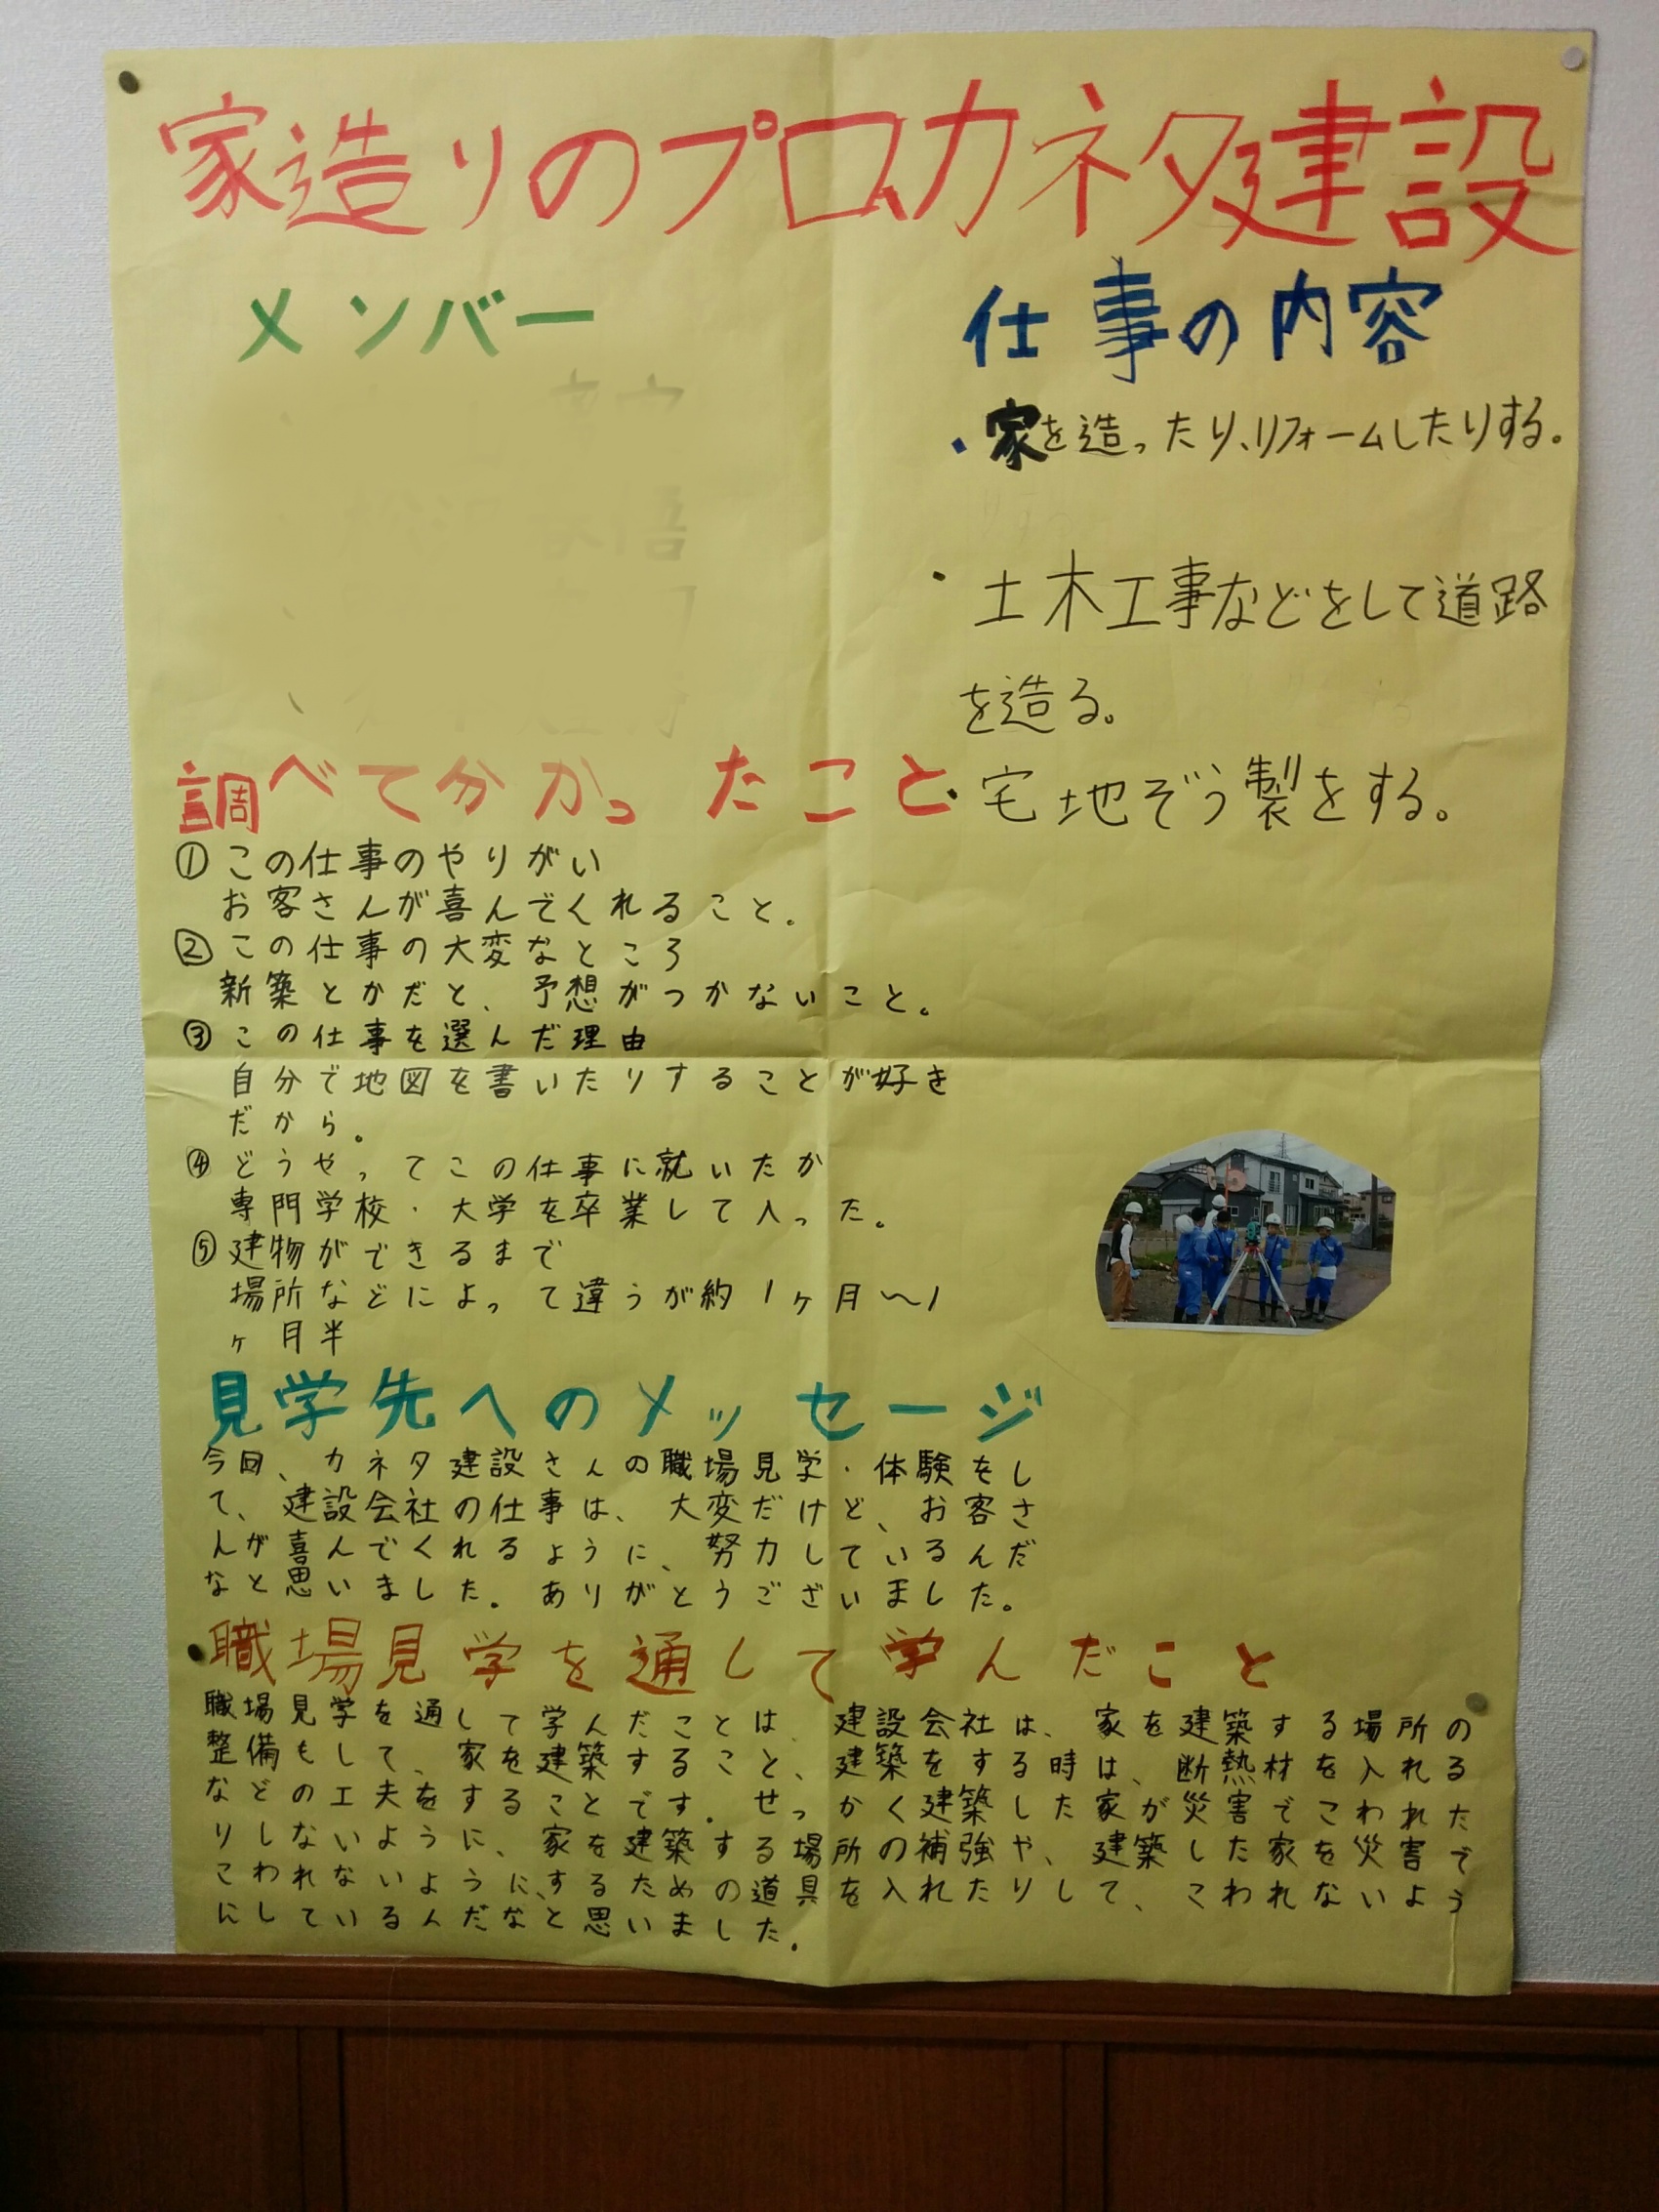 家造りのプロカネタ建設
メンバー
仕事の内容
・家を造ったり、リフォームしたりする。
・土木工事などをして道路
を造る。
・宅地ぞう製をする。
調べて分かったこと
①この仕事のやりがい
お客さんが喜んでくれること。
②この仕事の大変なところ
新築とかだと、予想がつかないこと。
③この仕事を選んだ理由
自分で地図を書いたりすることが好き
だから。
④どうやってこの仕事に就いたか
専門学校・大学を卒業して入った。
⑤建物ができるまで
場所などによって違うが約1ヶ月〜1
ヶ月半
見学先へのメッセージ
今回、カネタ建設さんの職場見学・体験をし
て、建設会社の仕事は、大変だけど、お客さ
んが喜んでくれるように、努力しているんだ
なと思いました。ありがとうございました。
職場見学を通して学んだこと
職場見学を通して学んだことは、建設会社は、家を建築する場所の
整備もして、家を建築すること、建築をする時は、断熱材を入れる
などの工夫をすることです。せっかく建築した家が災害でこわれた
りしないように、家を建築する場所の補強や、建築した家を災害で
こわれないように、するための道具を入れたりして、こわれないよう
にしているんだなと思いました。